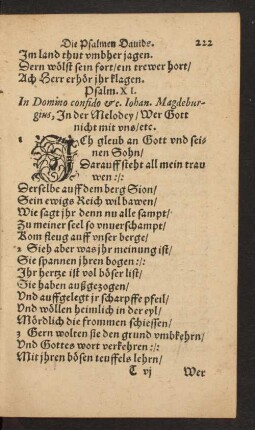 Die Psalmen Dauids. 222
Im land thut vmbher jagen.
Dern wölst sein fort/ ein trewer hort/
Ach Herr erhör jhr klagen.
Psalm. XI.
In Domino confido &c. Iohan. Magdebur-
gius, In der Melodey/ Wer Gott
nicht mit vns/ etc.
1 ICh gleub an Gott vnd sei-
nen Sohn/
Darauff steht all mein trau
wen :/:
Derselbe auff dem berg Sion/
Sein ewigs Reich wil bawen/
Wie sagt jhr denn nu alle sampt/
Zu meiner seel so vnuerschampt/
Kom fleug auff vnser berge/
2 Sieh aber was jhr meinung ist/
Sie spannen jhren bogen :/:
Ihr hertze ist vol böser list/
Sie haben außgezogen/
Vnd auffgelegt jr scharpffe pfeil/
Vnd wöllen heimlich in der eyl/
Mördlich die frommen schiessen/
3 Gern wolten sie den grund vmbkehrn/
Vnd Gottes wort verkehren :/:
Mit jhren bösen teuffels lehrn/
C vj Wer